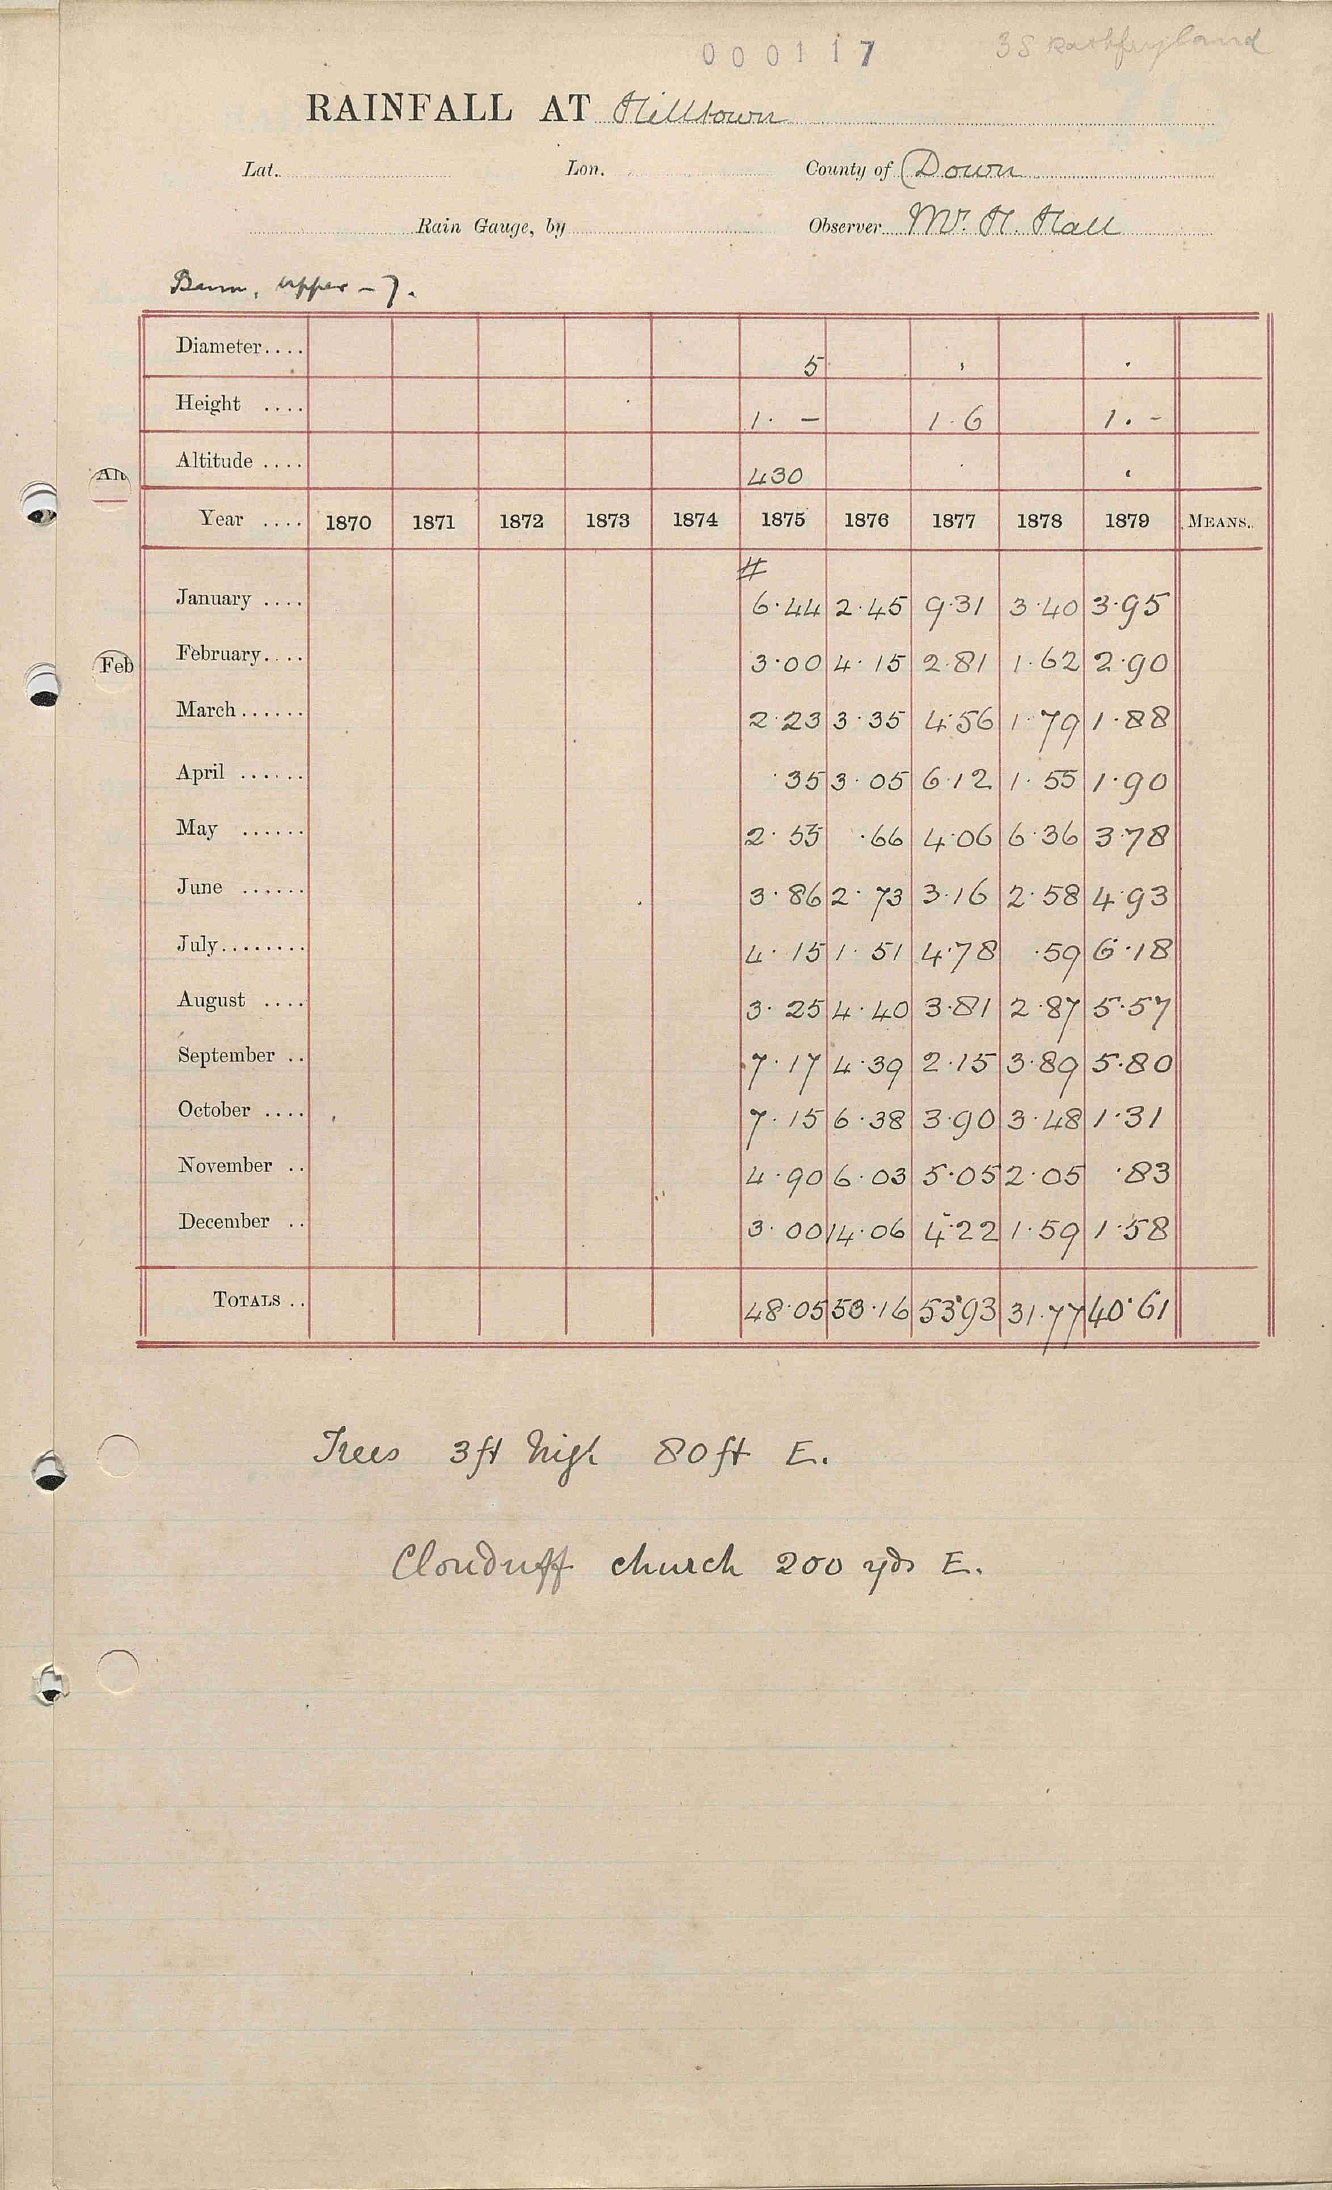 000117 3 S Rathfryland
RAINFALL AT Hilltown
Lat. Lon. County of Down
Rain Gauge, by Observer Mr. H. Hall
Bann, Upper - 7.
Diameter.... 5 ' .
Height .... 1. - 1.6 1. -
Altitude .... 430
Year .... 1870 1871 1872 1873 1874 1875 1876 1877 1878 1879 MEANS.
#
January .... 6.44 2.45 9.31 3.40 3.95
Feb February.... 3.00 4.15 2.81 1.62 2.90
March...... 2.23 3.35 4.56 1.79 1.88
April ...... .35 3.05 6.12 1.55 1.90
May ...... 2.55 .66 4.06 6.36 3.78
June ...... 3.86 2.73 3.16 2.58 4.93
July........ 4.15 1.51 4.78 .59 6.18
August .... 3.25 4.40 3.81 2.87 5.57
September .. 7.17 4.39 2.15 3.89 5.80
October .... 7.15 6.38 3.90 3.48 1.31
November .. 4.90 6.03 5.05 2.05 .83
December .. 3.00 14.06 4.22 1.59 1.58
TOTALS .. 48.05 53.16 53.93 31.77 40.61
Trees 3ft high 80ft E.
Clonduff church 200 yds E.